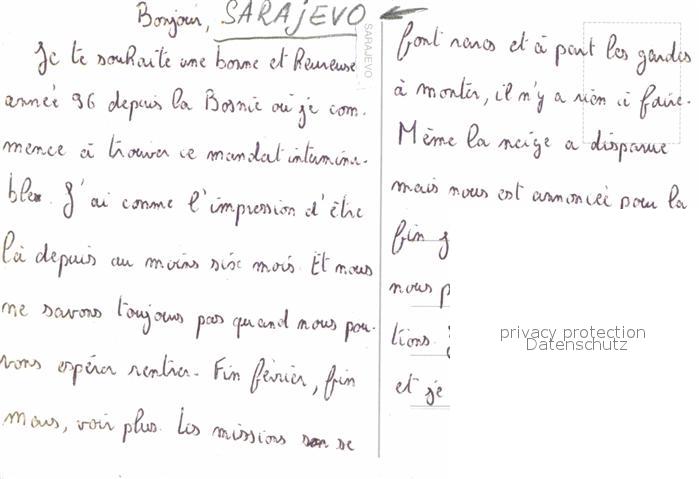 Bonjour, SARAJEVO
SARAJEVO
Je te souhaite une bonne et heureuse
année 96 depuis la Bosnie où je com-
mence à trouver ce mandat intermina-
ble. J'ai comme l'impression d'être
là depuis au moins six mois. Et nous
ne savons toujours pas quand nous pou-
vons espérer rentrer. Fin février, fin
Mars, voir plus. Les missions se
font rares et à part les gardes
à monter, il n'y a rien à faire.
Même la neige a disparue
mais nous est annoncée pour la
fin
nous p
tions.
et je
privacy protection
Datenschutz